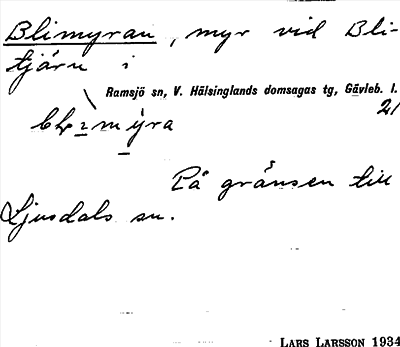 Blimyran, myr vid Bli-
tjärn i
Ramsjö sn, V. Hälsinglands domsagas tg, Gävleb. l.
21
På gränsen till
Ljusdals sn.
LARS LARSSON 1934